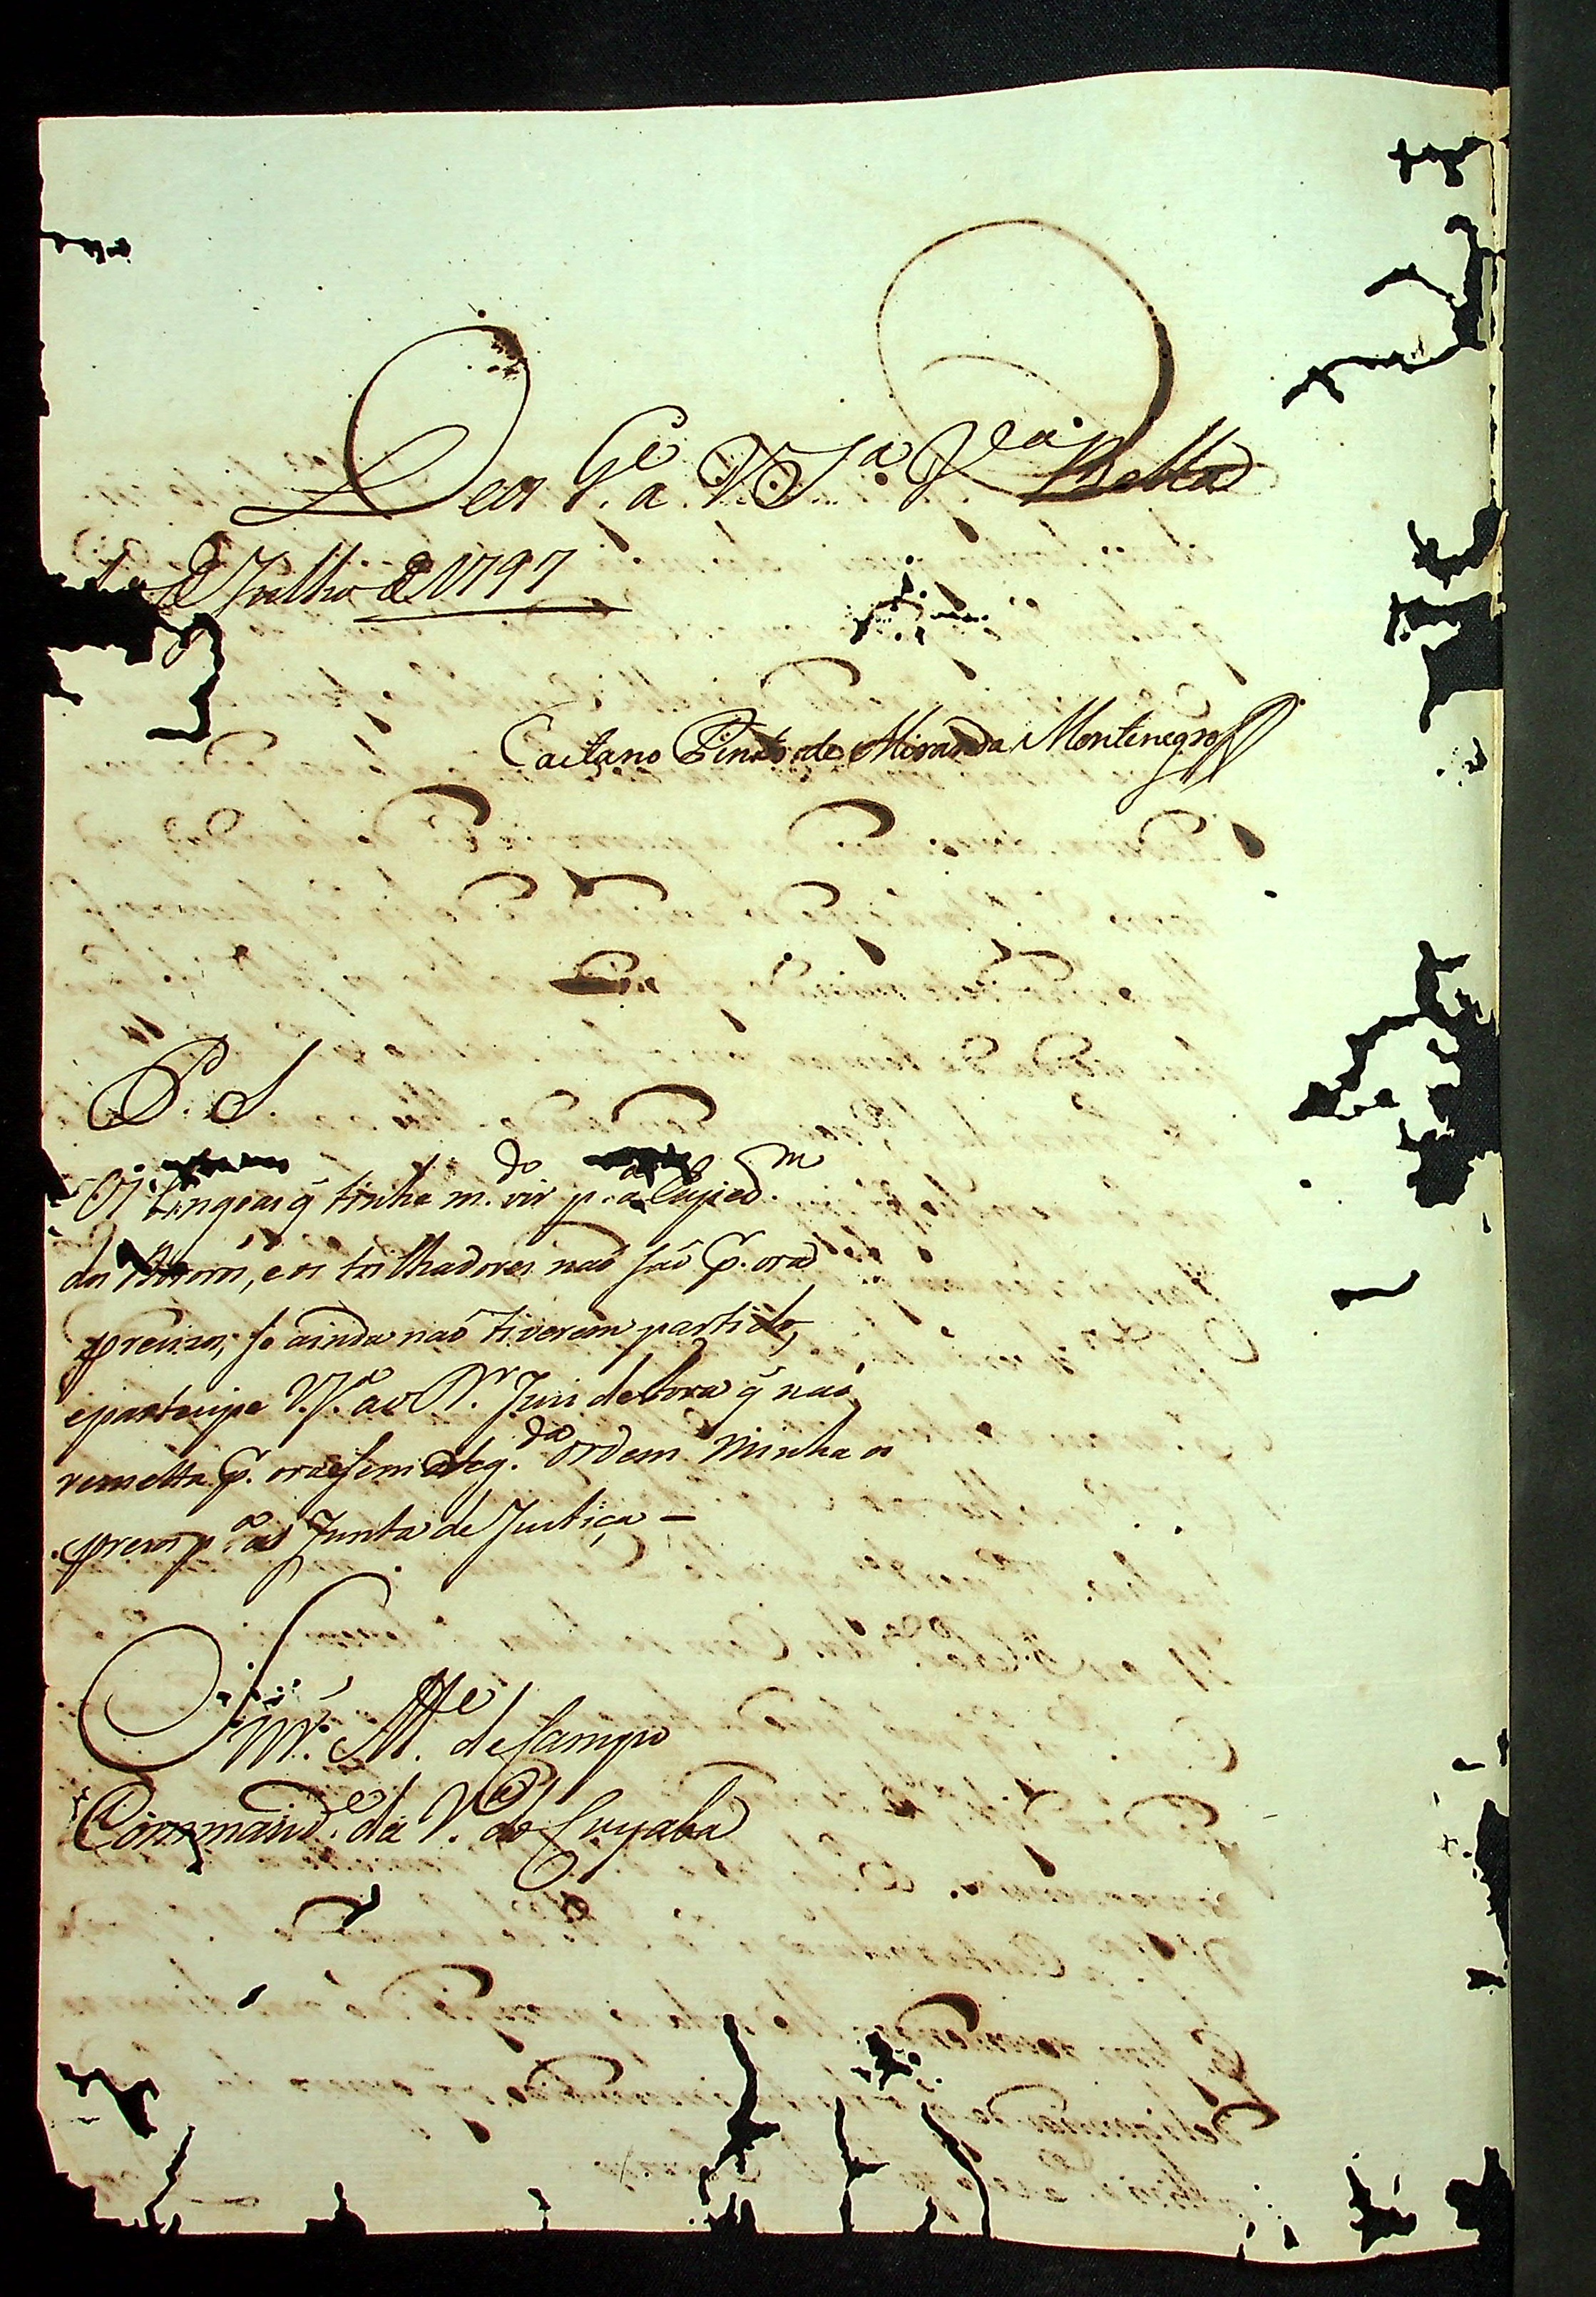 Deos G.e a V. S.a V.ea Bella
de Julho de 1797
Caetano Pinto de Miranda Montenegro
P. S.
Os q̃ tinha m.do vir p.a a Exped.m
dos e os trilhadores naõ saõ p. ora
precizos, se ainda naõ tiverem partido,
eparticipe V. S.a ao D.r Juis de fora q̃ naõ
remetta p. ora sem seg.da ordem minha os
prezos p.a a Junta de Justiça —
Snr. M.e de Campo
Command.e da V.a do Cuyaba